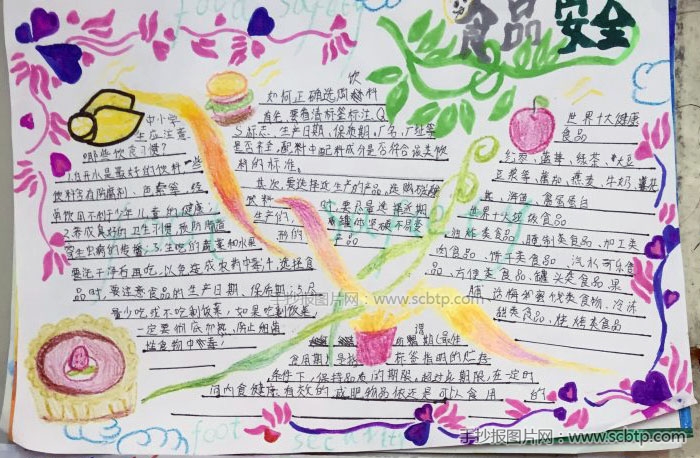 食品安全
food safety
中小学
生应注意
哪些饮食习惯?
1.白开水是最好的饮料,一些
饮料含有防腐剂、色素等,经
常饮用不利于少年儿童的健康;
2.养成良好的卫生习惯,预防肠道
寄生虫病的传播;3.生吃的蔬菜和水果
要洗干净后再吃,以免造成农药中毒;4.选择食
品时,要注意食品的生产日期、保质期;5.尽
量少吃或不吃剩饭菜,如果吃剩饭菜,
一定要彻底加热,防止细菌
性食物中毒;
如何正确选用饮料
首先,要看清标签标注,Q
S标志、生产日期、保质期、厂名、厂址等
是否齐全,配料中配料成分是否符合该类饮
料的标准。
其次,要选择近生产的产品,选购碳酸
饮料 要尽量选择近期
生产的, 罐体坚硬不易变
形的 产品
世界十大健康
食品
红枣、 红茶、大豆
豆浆等 燕麦、牛奶
鱼、海鱼、富含蛋白
世界十大垃圾食品
油炸类食品、腌制类食品、加工类
肉食品、饼干类食品、汽水可乐食
品、方便类食品、罐头类食品、果
脯、话梅和蜜饯类食物、冷冻
甜类食品、烧烤类食品
谓
保质期(最佳
食用期)是指 标签指明的贮存
条件下,保持品质的期限。超过此期限,在一定时
间内食
可以食用 的
food security
手抄报图片网:www.scbtp.com
手抄报图片网:www.scbtp.com